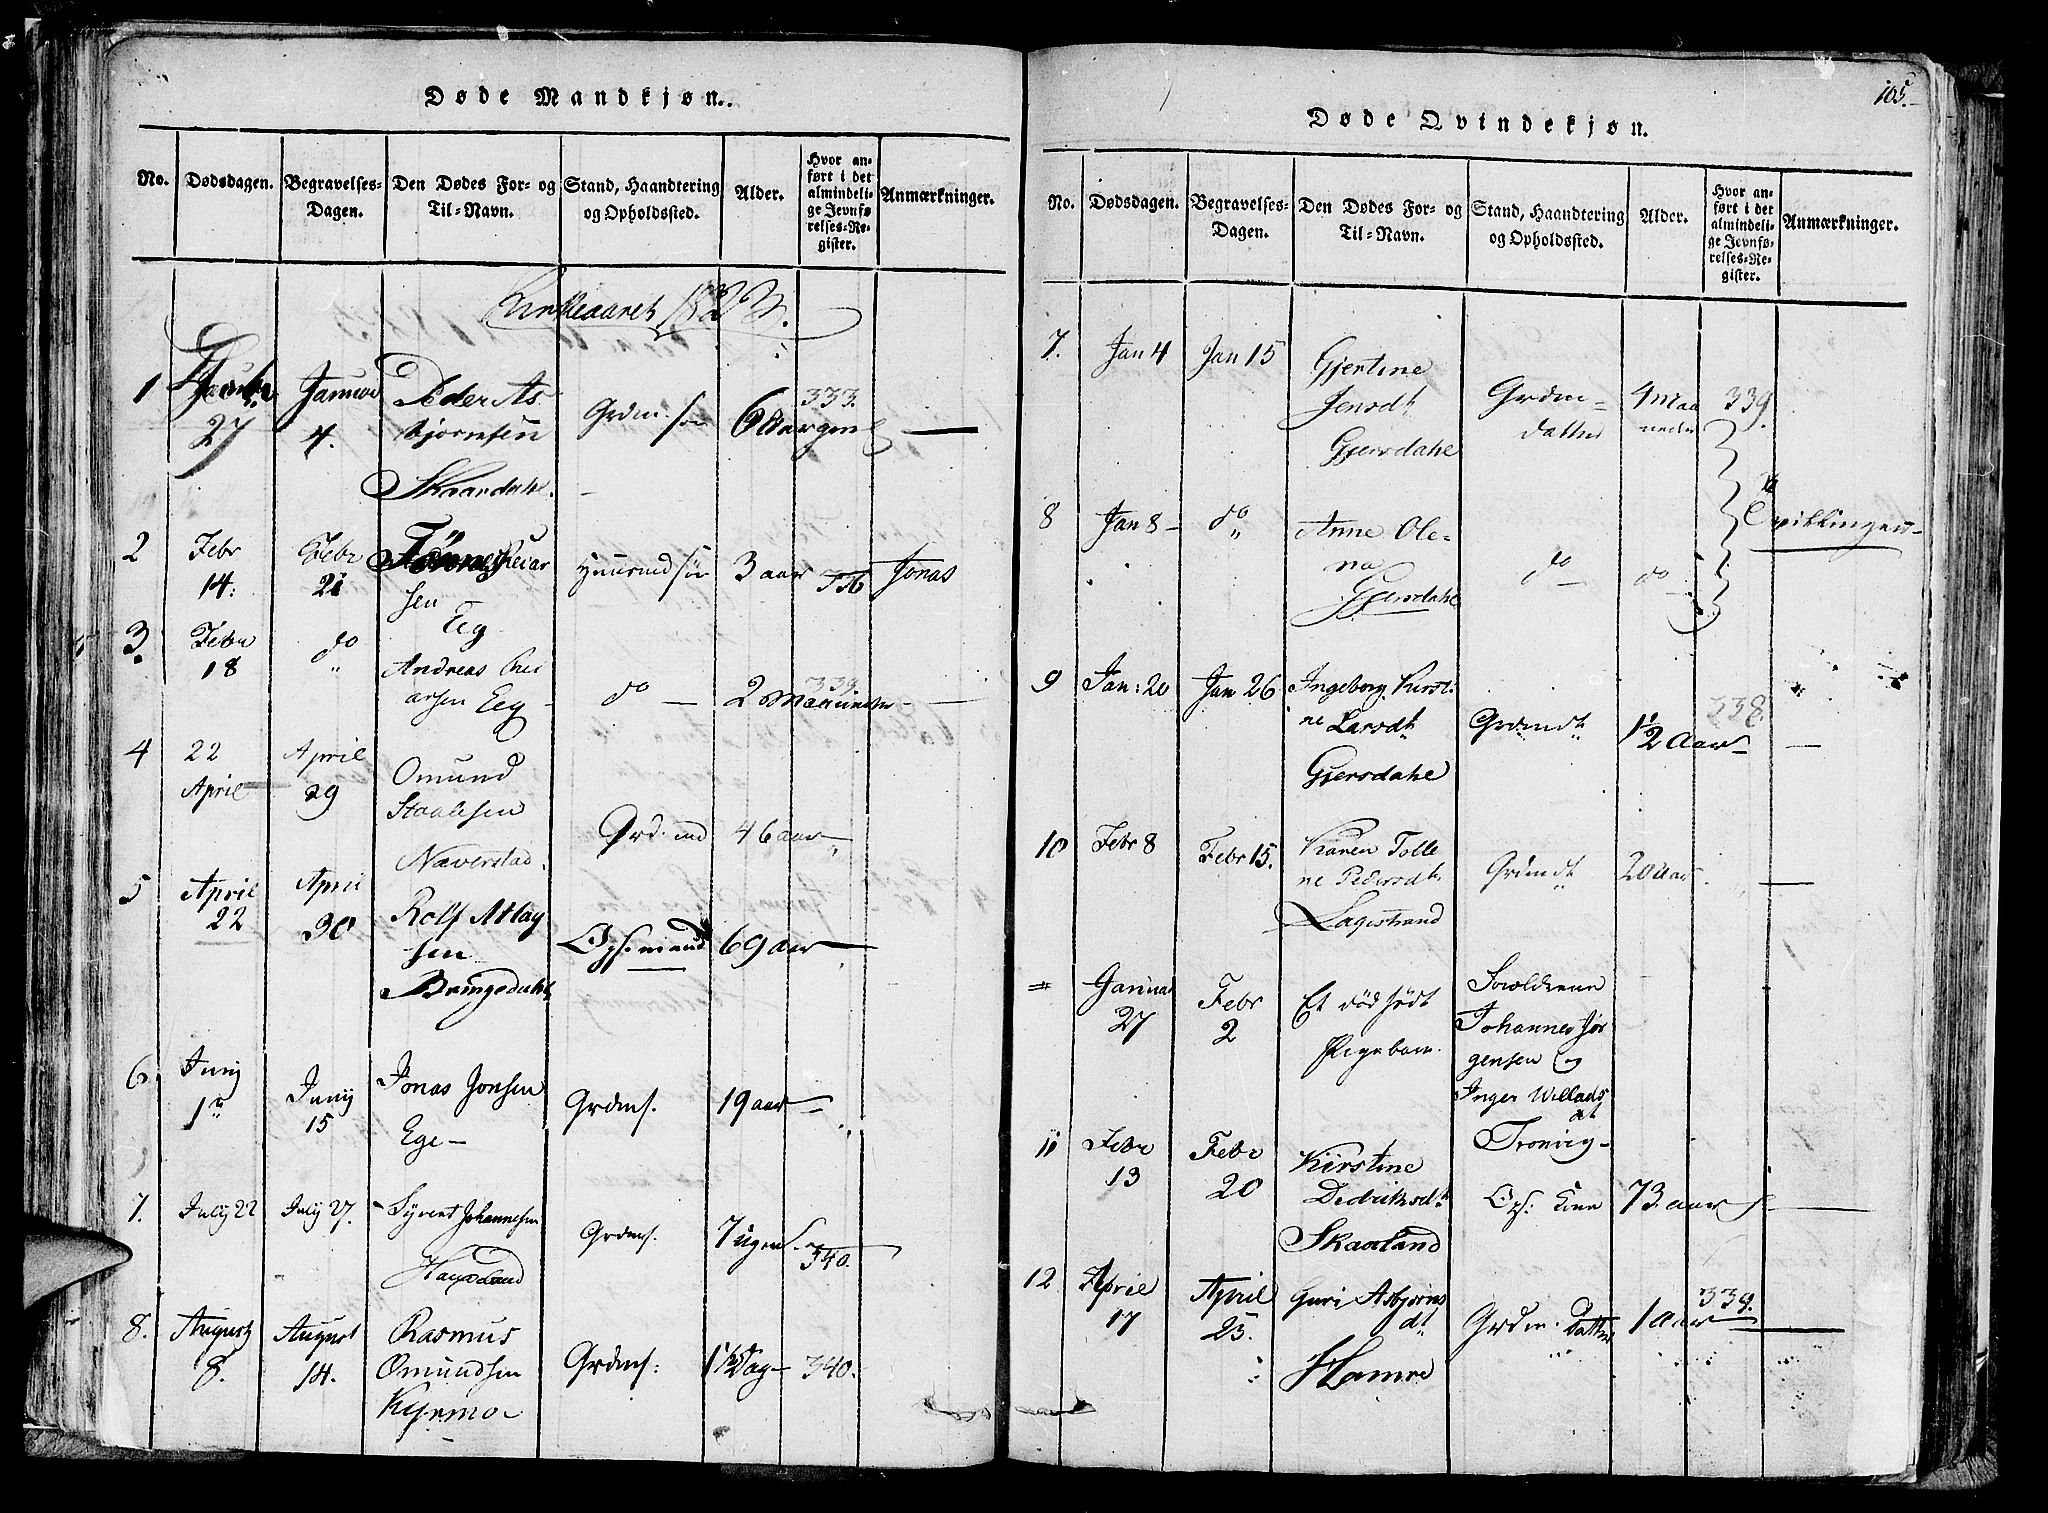 105.
Døde Mandkjøn.
No.
Dødsdagen.
Begravelses-
Dagen.
Den Dødes For- og
Til-Navn.
Stand, Haandtering
og Opholdssted.
Alder.
Hvor an-
ført i det
almindeli-
ge Jevnfø
relses-Re-
gister.
Anmærkninger.
Kirkeaaret
1
27
Januar
4.
Peder As
bjørnsen
Skaardahl.
Grdm. søn
6 Aar
333.
2
Febr
14.
Febr
21
Eeg
Huusmd søn
3 aar
336
Jonas
3.
Febr
18
do
Andreas
arsen Eeg
do
2 Maaneder
339
4
22
April
April
29
Omund
Staalesen
Naverstad.
Grd. md
46 aar
5
April
22
April
30
Rolf Atlay
sen
Bringedahl
Ops. mand
69 aar
6
Juny
1
Juny
15
Jonas Jonsen
Ege
Grdms.
19 aar
7.
July 22
July 27.
Syvert Johannesen
Hauxland
Grdms.
7 ugen
340.
8.
August
8.
August
14.
Rasmus
Omundsen
Kyrmoe
Grdms:
1½ Dag
340.
Døde Qvindekjøn.
No.
Dødsdagen.
Begravelses-
Dagen.
Den Dødes For- og
Til-Navn.
Stand, Haandtering
og Opholdssted.
Alder.
Hvor an-
ført i det
almindeli-
ge Jevnfø-
relses-Re-
gister.
Anmærkninger.
7.
Jan 4
Jan 15
Gjertine
Jensdt
Gjersdahl
Grdm
datter
4 Maa
neder
339.
8
Jan 8
do
Anne Ole-
na
Gjersdahl
do
do
Tvillinger
9
Jan: 20
Jan 26
Ingeborg Kirsti
ne Larsdt
Gjersdahl
Grdmdt
1½ Aar
338.
10
Febr 8
Febr 15.
Karen Tolle
ne Pedersdt.
Lagestrand
Grdmdt
20 aar
Januar
27
Febr
2
Et dødfødt
Pigebarn.
Johannes Jør
gensen og
Inger Willads
dt
Tronvig
11
Febr
13
Febr
20
Kirstine
Dedriksdt
Skaaland
Ops: Kone
73 aar
12
April
17
April
25.
Guri Asbjørns
dt
Hamre
Grdm. Datter
1 Aar
339.